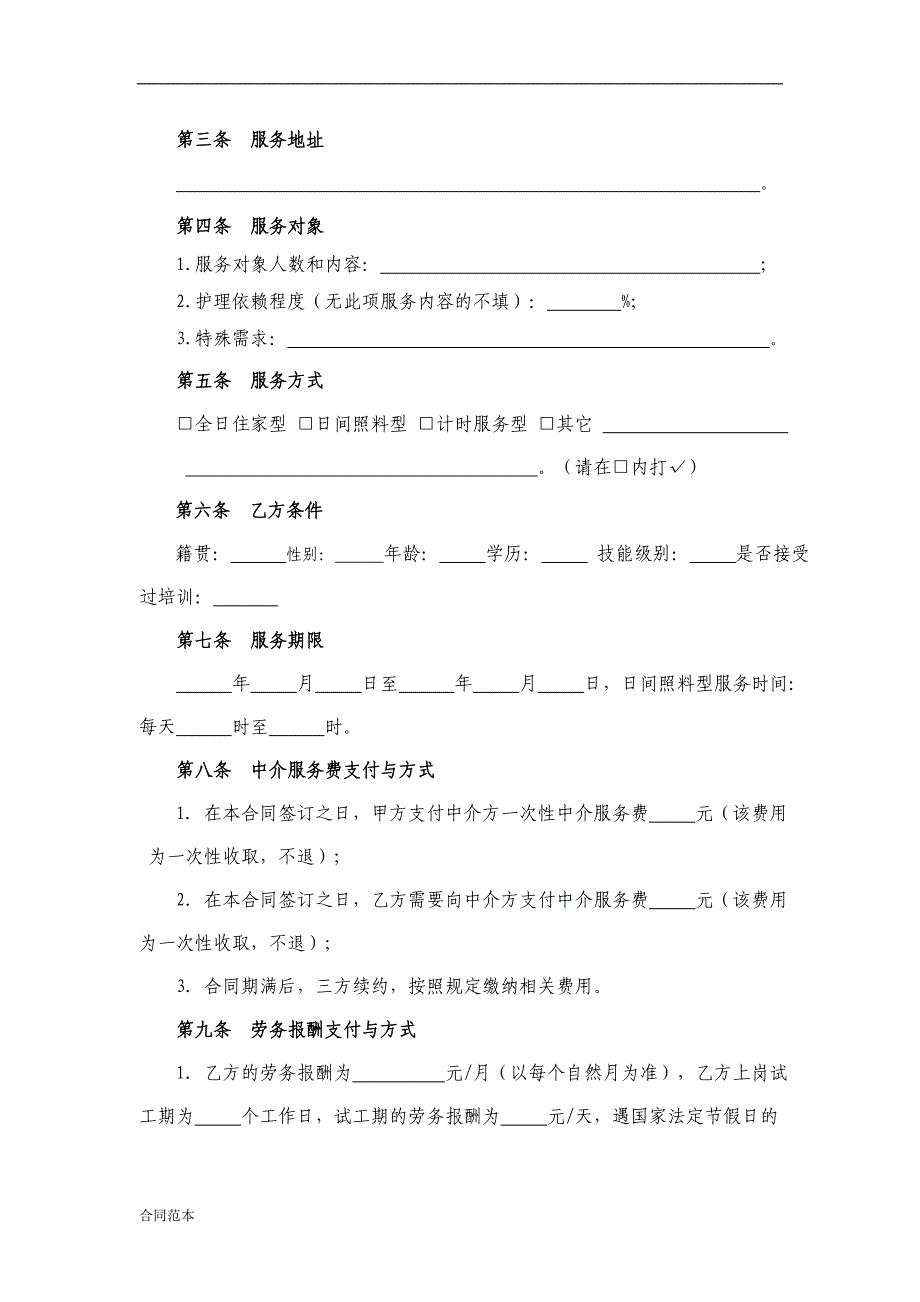 第三条 服务地址
____________________。
第四条 服务对象
1.服务对象人数和内容：____________________；
2.护理依赖程度（无此项服务内容的不填）：________%；
3.特殊需求：____________________。
第五条 服务方式
□全日住家型 □日间照料型 □计时服务型 □其它 ____________________
____________________。（请在□内打√）
第六条 乙方条件
籍贯：______性别：_____年龄：_____学历：_____ 技能级别：_____是否接受
过培训：_______
第七条 服务期限
______年_____月_____日至______年_____月_____日，日间照料型服务时间：
每天______时至______时。
第八条 中介服务费支付与方式
1. 在本合同签订之日，甲方支付中介方一次性中介服务费_____元（该费用
为一次性收取，不退）；
2. 在本合同签订之日，乙方需要向中介方支付中介服务费_____元（该费用
为一次性收取，不退）；
3. 合同期满后，三方续约，按照规定缴纳相关费用。
第九条 劳务报酬支付与方式
1. 乙方的劳务报酬为__________元/月（以每个自然月为准），乙方上岗试
工期为_____个工作日，试工期的劳务报酬为_____元/天，遇国家法定节假日的
合同范本